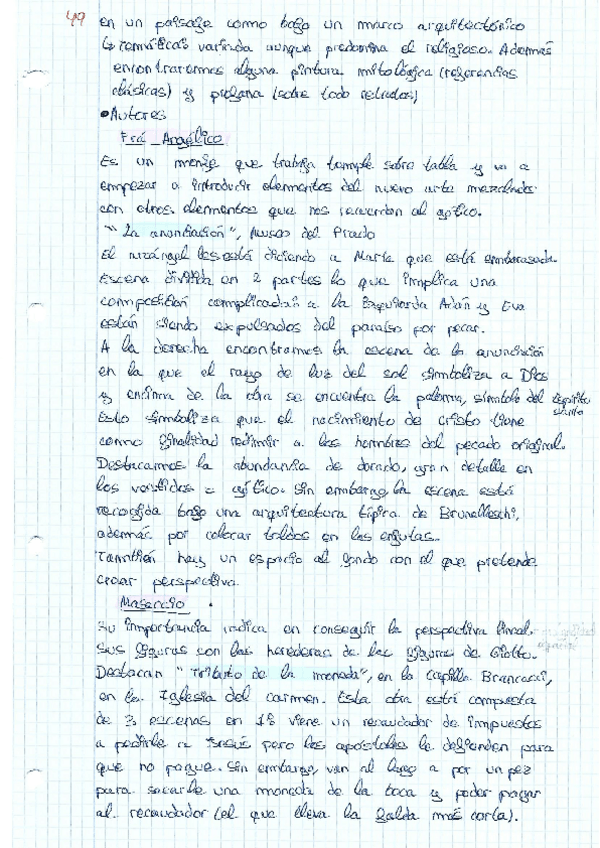 49
en un paisaje como bajo un marco arquitectónico
↳ temáticas variada aunque predomina el religioso. Además
encontraremos alguna pintura mitológica (referencias
clásicas) y profana (sobre todo retratos)
• Autores
Frá Angélico
Es un monje que trabaja temple sobre tabla y va a
empezar a introducir elementos del nuevo arte mezclados
con otros elementos que nos recuerdan al gótico.
"La anunciación", Museo del Prado
El arcángel les está diciendo a María que está embarazada.
Escena dividida en 2 partes lo que implica una
composición complicada: a la izquierda Adán y Eva
están siendo expulsados del paraíso por pecar.
A la derecha encontramos la escena de la anunciación
en la que el rayo de luz del sol simboliza a Dios
y encima de la obra se encuentra la paloma, símbolo del Espíritu
Santo
Esto simboliza que el nacimiento de cristo tiene
como finalidad redimir a los hombres del pecado original.
Destacamos la abundancia de dorado, gran detalle en
los vestidos = gótico. Sin embargo, la escena está
recogida bajo una arquitectura típica de Brunelleschi,
además por colocar toldos en las enjutas.
También hay un espacio al fondo con el que pretende
crear perspectiva.
Masaccio
Su importancia radica en conseguir la perspectiva lineal.
Sus figuras son las herederas de las figuras de Giotto.
Destacan "Tributo de la moneda", en la capilla Brancacci,
en la Iglesia del carmen. Esta obra está compuesta
de 3 escenas en 1ª viene un recaudador de impuestos
a pedirle a Jesús pero los apóstoles le defienden para
que no pague. Sin embargo, van al lago a por un pez
para sacarle una moneda de la boca y poder pagar
al recaudador (el que lleva la falda más corta).